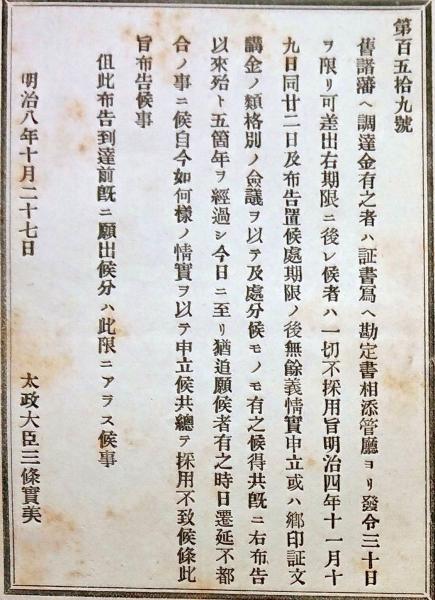 第百五拾九號
舊諸藩ヘ調達金有之者ハ証書寫ヘ勘定書相添管廳ヨリ發令三十日
ヲ限リ可差出右期限ニ後レ候者ハ一切不採用旨明治四年十一月十
九日同廿二日及布告置候處期限ノ後無餘義情實申立或ハ鄕印証文
講金ノ類格別ノ僉議ヲ以テ及處分候モノモ有之候得共旣ニ右布告
以來殆ト五箇年ヲ經過シ今日ニ至リ猶追願候者有之時日遷延不都
合ノ事ニ候自今如何樣ノ情實ヲ以テ申立候共總テ採用不致候條此
旨布告候事
但此布告到達前旣ニ願出候分ハ此限ニアラス候事
明治八年十月二十七日
太政大臣三條實美